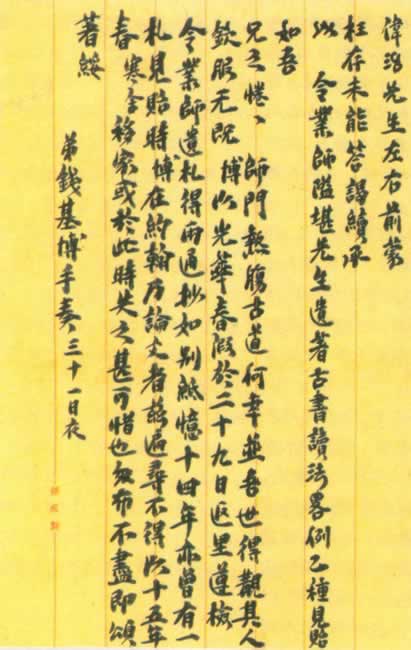 偉治先生左右前蒙
枉存未能答謁續承
以 令業師隘堪先生遺著古書讀法畧例乙種見貽
如吾
兄之惓、師門熱腸古道何幸並吾世得觀其人
欽服无既 博以光華春假於二十九日返里謹檢
令業師遺札得兩通抄如別紙憶十四年亦曾有一
札見貽時博在約翰乃論文者茲遍尋不得以十五年
春寒舍移家或於此時失之甚可惜也匆布不盡即頌
著綏
弟錢基博手奏三十一日夜